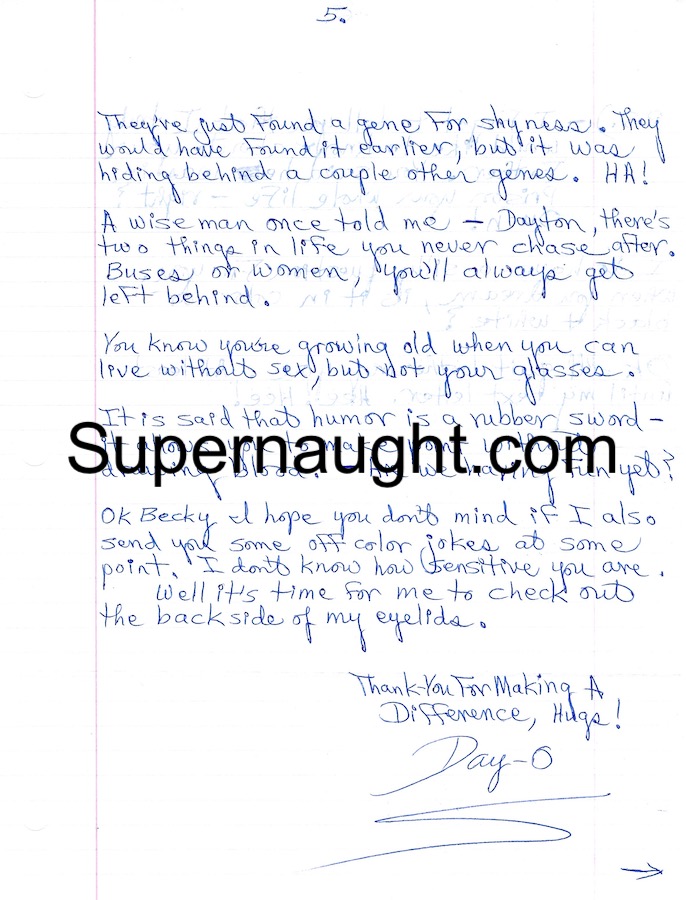 5.
They've just Found a gene For shyness. They
would have Found it earlier, but it was
hiding behind a couple other genes. HA!
A wise man once told me - Dayton, there's
two things in life you never chase after.
Buses or women, you'll always get
left behind.
You know you're growing old when you can
live without sex, but not your glasses.
It is said that humor is a rubber sword -
it you to make point without
Supernaught.com
drawing blood. - Are we having fun yet?
Ok Becky - I hope you don't mind if I also
send you some off color jokes at some
point. I don't know how sensitive you are.
Well it's time for me to check out
the backside of my eyelids.
Thank-You For Making A
Difference, Hugs!
Day-O